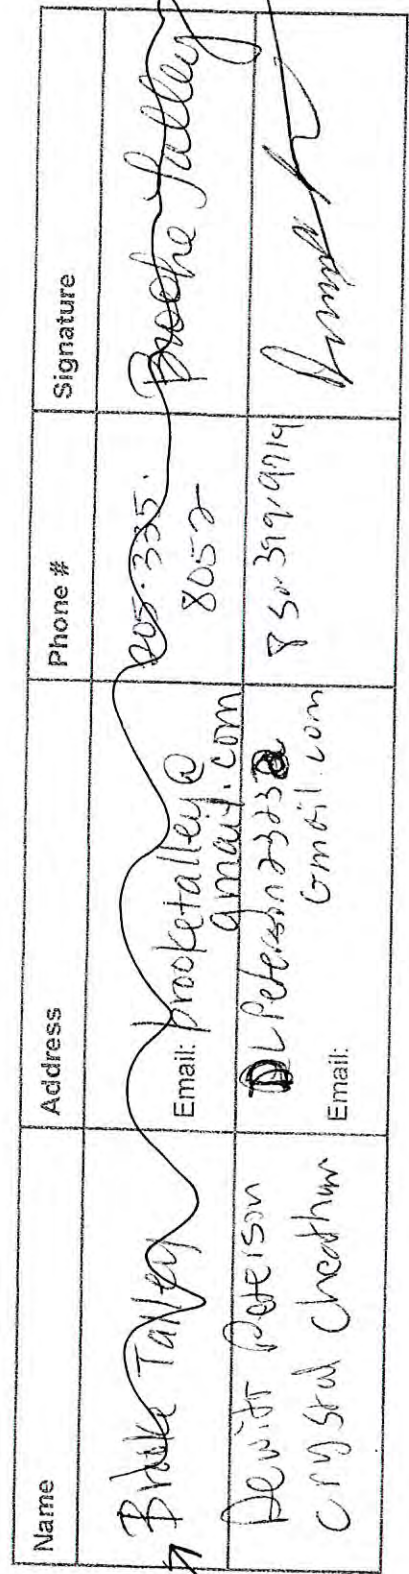 Name Address Phone # Signature
Brooke Talley
Email: brooketalley@
gmail.com
205.335.
8052
Brooke Talley
Dewitt Peterson
Crystal Cheathum
DLPeterson2323@
Gmail.com
Email:
850